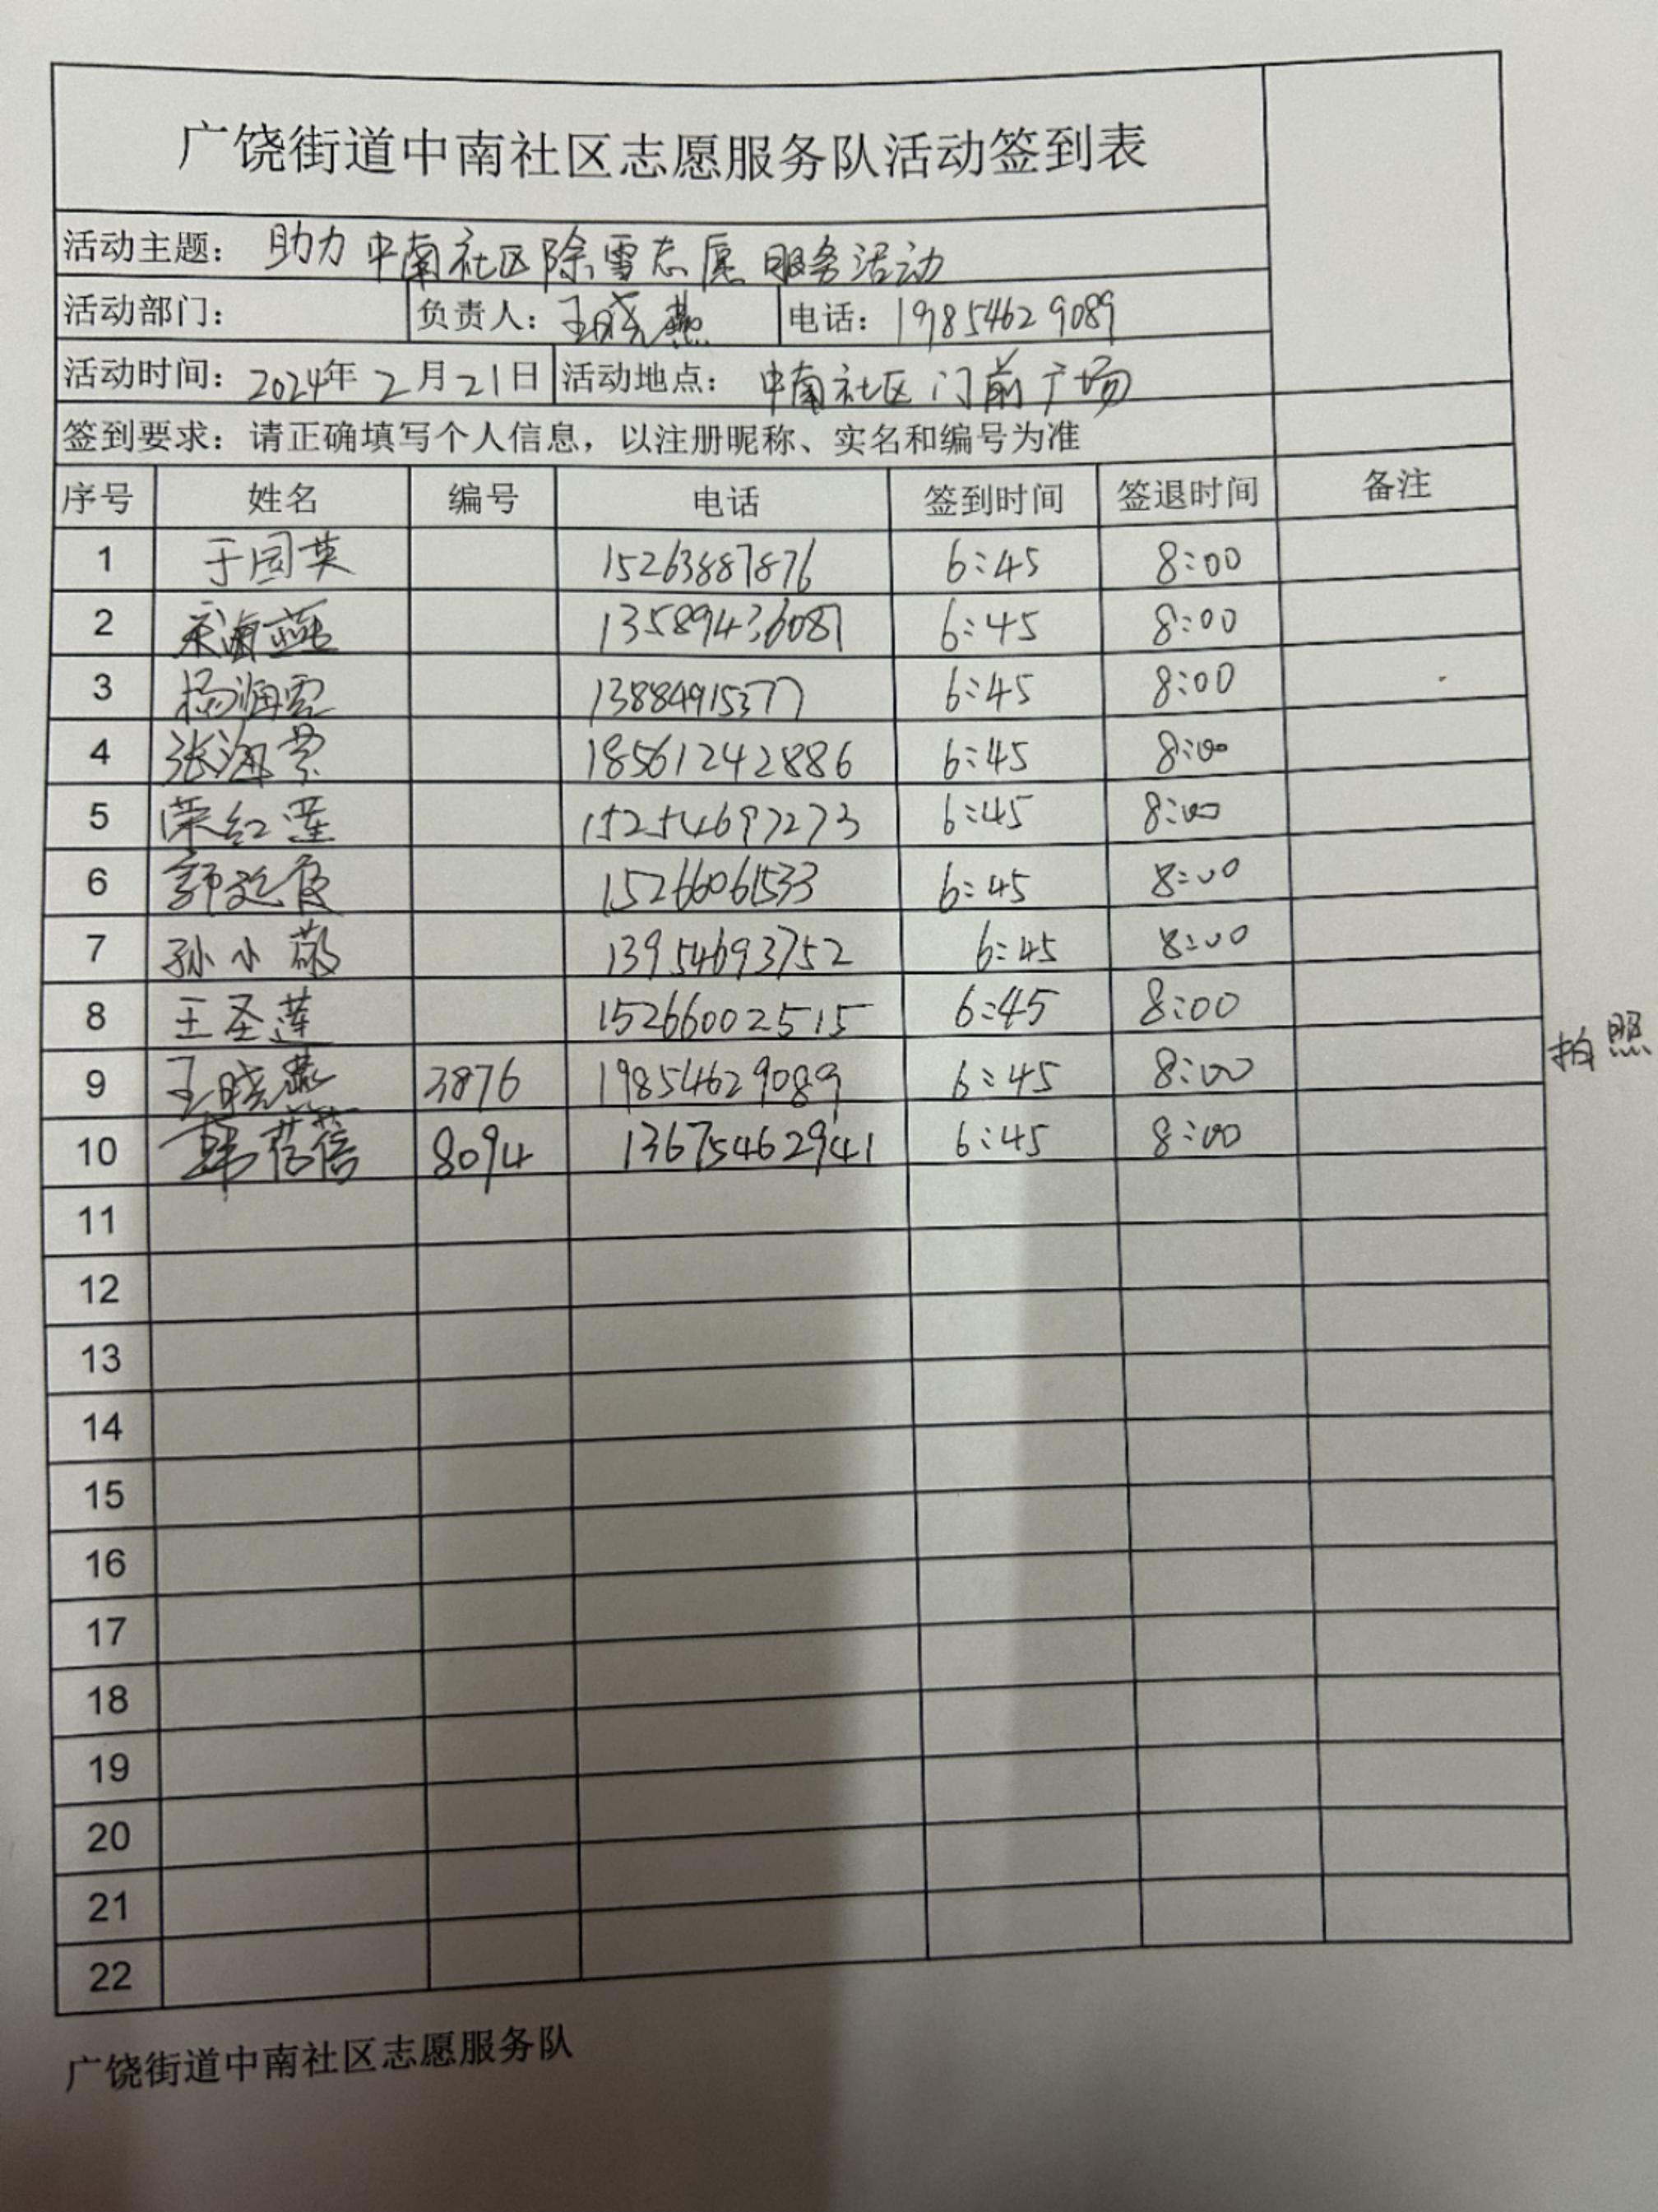 广饶街道中南社区志愿服务队活动签到表
活动主题： 助力中南社区除雪志愿服务活动
活动部门： 负责人：王晓燕 电话：19854629089
活动时间：2024年2月21日 活动地点：中南社区门前广场
签到要求：请正确填写个人信息，以注册昵称、实名和编号为准
序号 姓名 编号 电话 签到时间 签退时间 备注
1 于国英 15263887876 6:45 8:00
2 宋海燕 13589436087 6:45 8:00
3 杨海霞 13884915377 6:45 8:00
4 张海 18561242886 6:45 8:00
5 荣红莲 15254697273 6:45 8:00
6 郭延俊 15266061533 6:45 8:00
7 孙小敬 13954693752 6:45 8:00
8 王圣莲 15266002515 6:45 8:00
9 王晓燕 3876 19854629089 6:45 8:00 拍照
10 韩蓓蓓 8094 13675462941 6:45 8:00
11
12
13
14
15
16
17
18
19
20
21
22
广饶街道中南社区志愿服务队